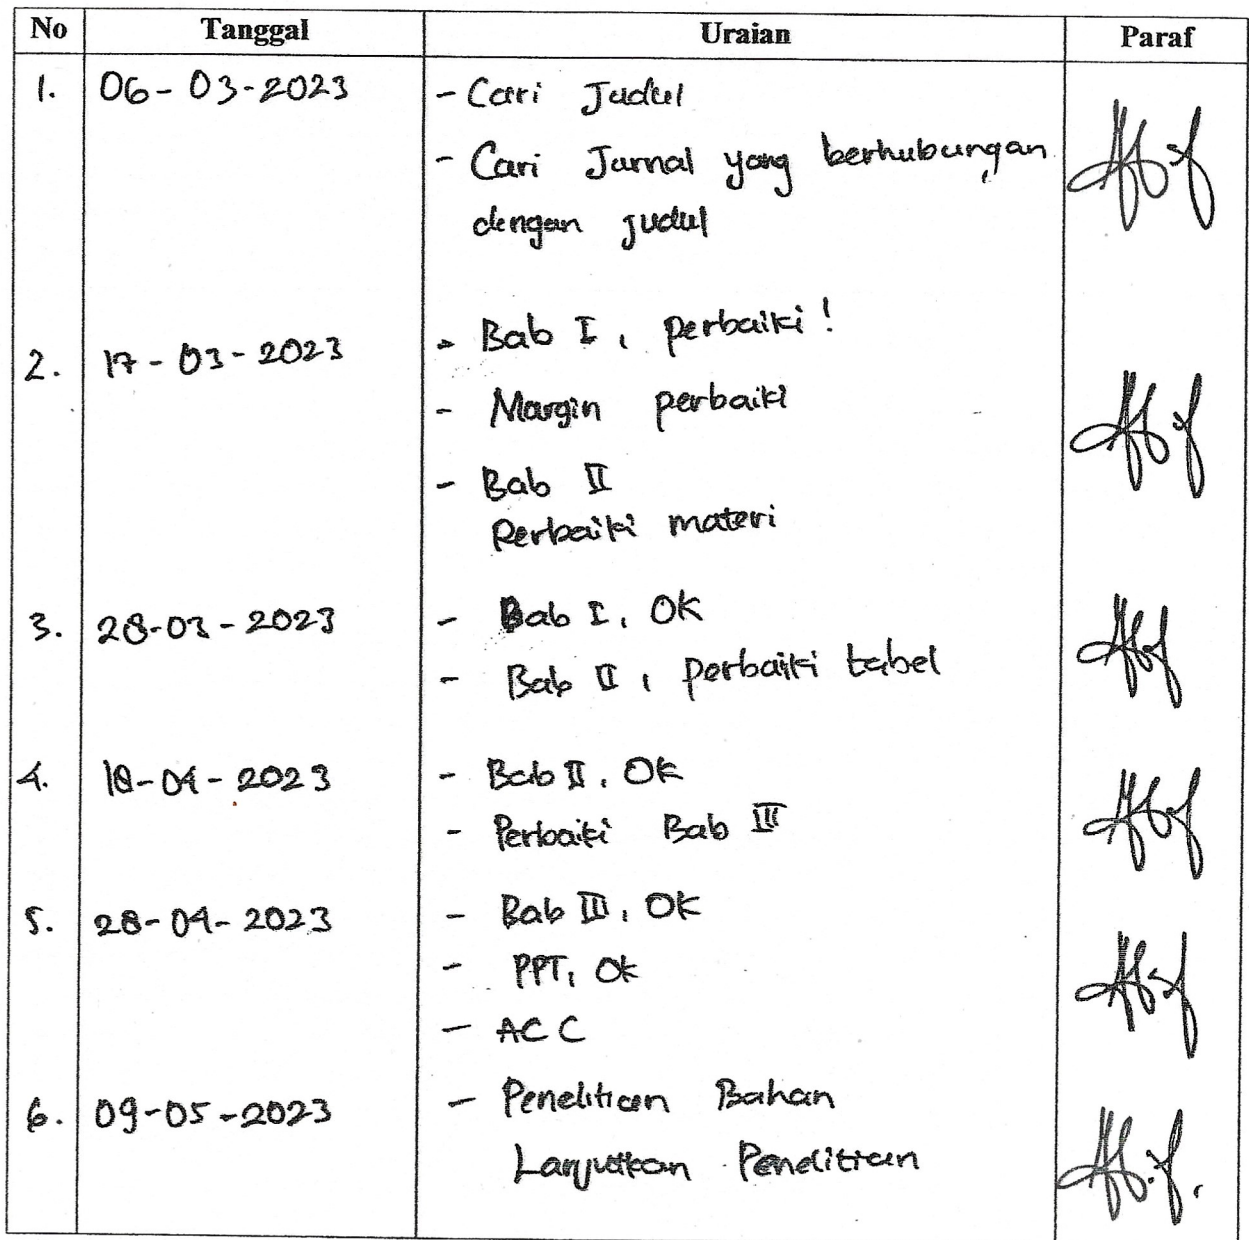 No Tanggal Uraian Paraf
1. 06-03-2023 - Cari Judul
- Cari Jurnal yang berhubungan
dengan judul
2. 17-03-2023 - Bab I, perbaiki!
- Margin perbaiki
- Bab II
Perbaiki materi
3. 28-03-2023 - Bab I, OK
- Bab II, perbaiki tabel
4. 18-04-2023 - Bab II, OK
- Perbaiki Bab III
5. 28-04-2023 - Bab III, OK
- PPT, Ok
- ACC
6. 09-05-2023 - Penelitian Bahan
Lanjutkan Penelitian